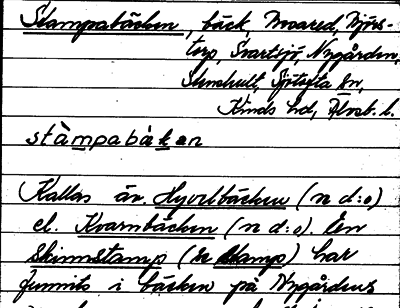 Stampabäcken, bäck, Moared, Mjörs-
torp, Svartsjö, Nygården,
Stenshult, Sjötofta sn,
Kinds hd, Älvsb. l.
stàmpabäken
Kallas äv. Hyvelbäcken (n d:o)
el. Kvarnbäcken (n d:o). En
skinnstamp (n stamp) har
funnits i bäcken på Nygårdens